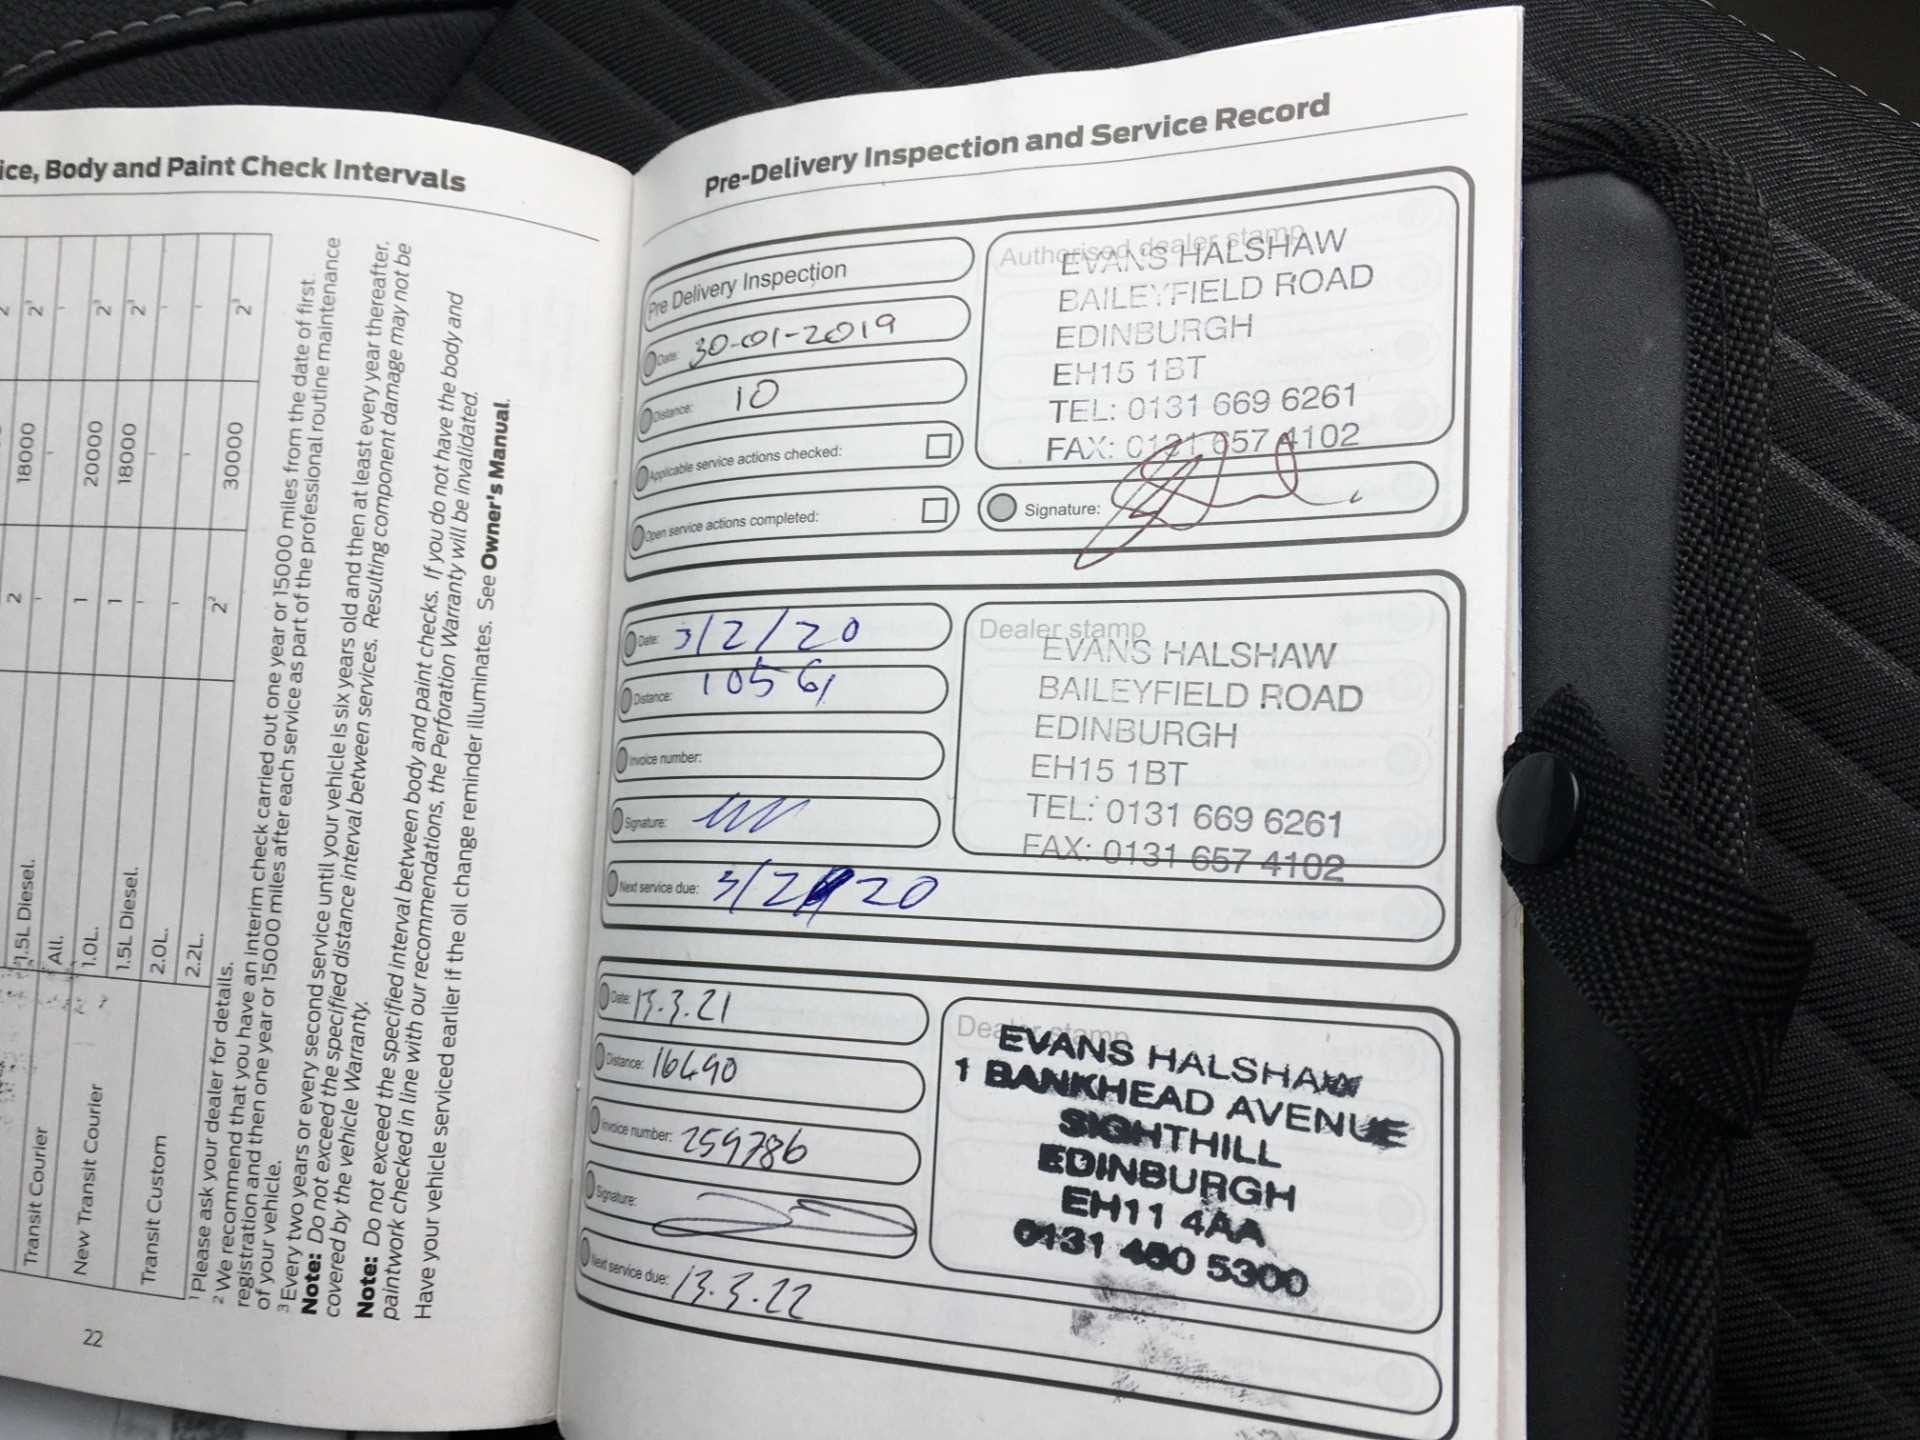 ice, Body and Paint Check Intervals
2 2³ - 2³ 2³ - - 2³
18000 - 20000 18000 - - 30000
2 - 1 1 - - 2²
1.5L Diesel.
All.
1.0L.
1.5L Diesel.
2.0L.
2.2L.
Transit Courier
New Transit Courier
Transit Custom
¹ Please ask your dealer for details.
² We recommend that you have an interim check carried out one year or 15000 miles from the date of first
registration and then one year or 15000 miles after each service as part of the professional routine maintenance
of your vehicle.
³ Every two years or every second service until your vehicle is six years old and then at least every year thereafter.
Note: Do not exceed the specified distance interval between services. Resulting component damage may not be
covered by the vehicle Warranty.
Note: Do not exceed the specified interval between body and paint checks. If you do not have the body and
paintwork checked in line with our recommendations, the Perforation Warranty will be invalidated.
Have your vehicle serviced earlier if the oil change reminder illuminates. See Owner's Manual.
22
Pre-Delivery Inspection and Service Record
Pre Delivery Inspection
Date: 30-01-2019
Distance: 10
Applicable service actions checked:
Open service actions completed:
Authorised dealer stamp
EVANS HALSHAW
BAILEYFIELD ROAD
EDINBURGH
EH15 1BT
TEL: 0131 669 6261
FAX: 0131 657 4102
Signature:
Date: 3/2/20
Distance: 10561
Invoice number:
Signature:
Next service due: 3/2/20
Dealer stamp
EVANS HALSHAW
BAILEYFIELD ROAD
EDINBURGH
EH15 1BT
TEL: 0131 669 6261
FAX: 0131 657 4102
Date: 13.3.21
Distance: 16490
Invoice number: 259786
Signature:
Next service due: 13.3.22
Dealer stamp
EVANS HALSHAW
1 BANKHEAD AVENUE
SIGHTHILL
EDINBURGH
EH11 4AA
0131 450 5300